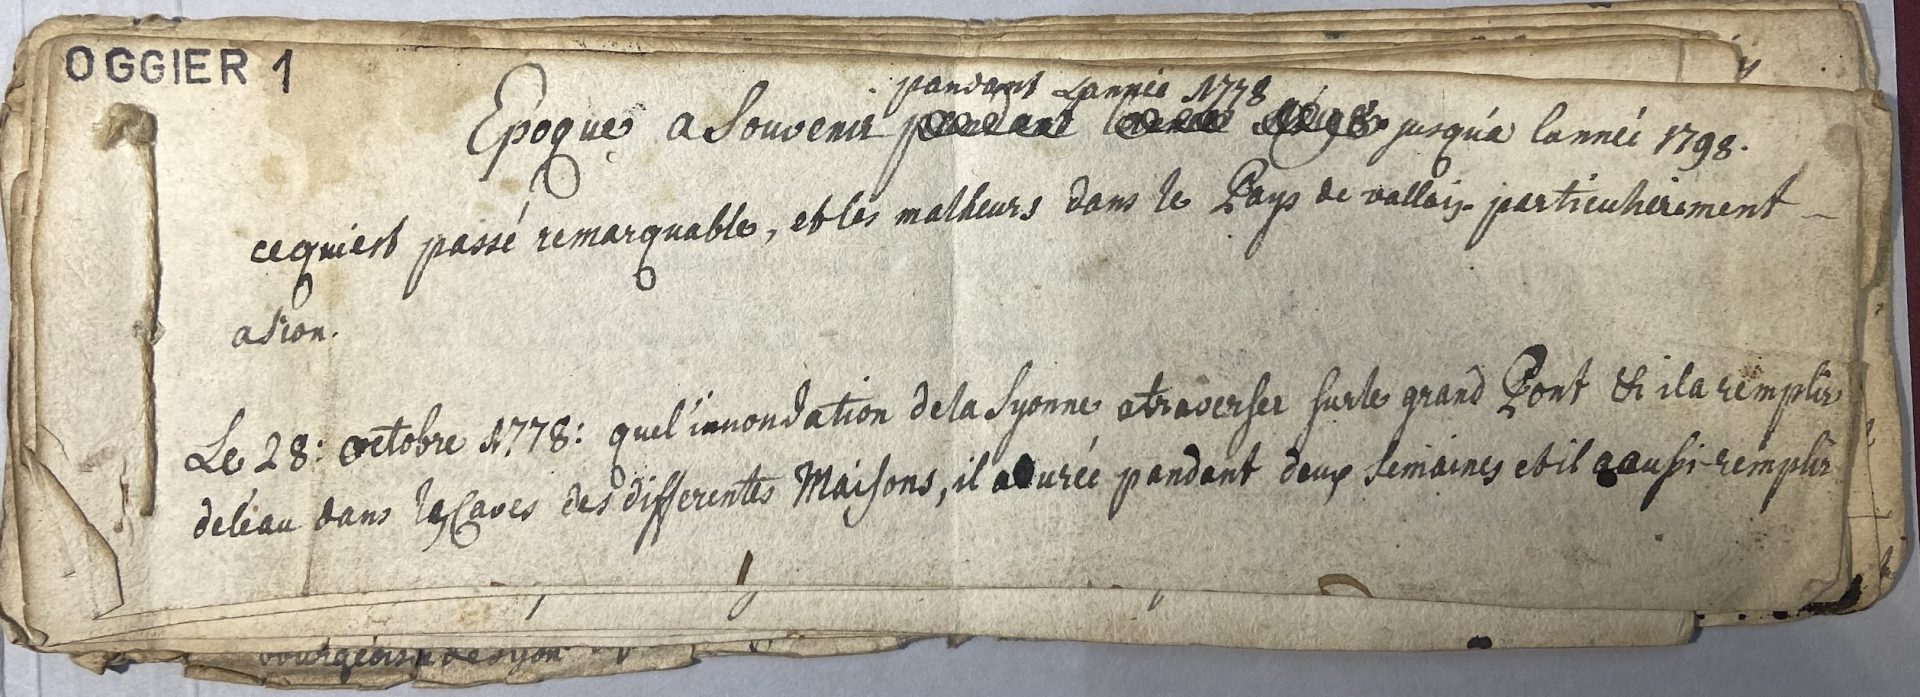 OGGIER 1
pandant Lanneé 1778
Epoque a Souvenir jusqu'a lanneé 1798.
cequiest passé remarquable, et les malheurs dans le Pays de vallais particuliérement
a Sion.
Le 28: octobre 1778: quel'innondation dela Syonne atraverser surle grand Pont & il a remplir
deleau dans les Caves des differentes Maisons, il a dureé pandant deux semaines et il aaussi remplir
bourgeois de Syon